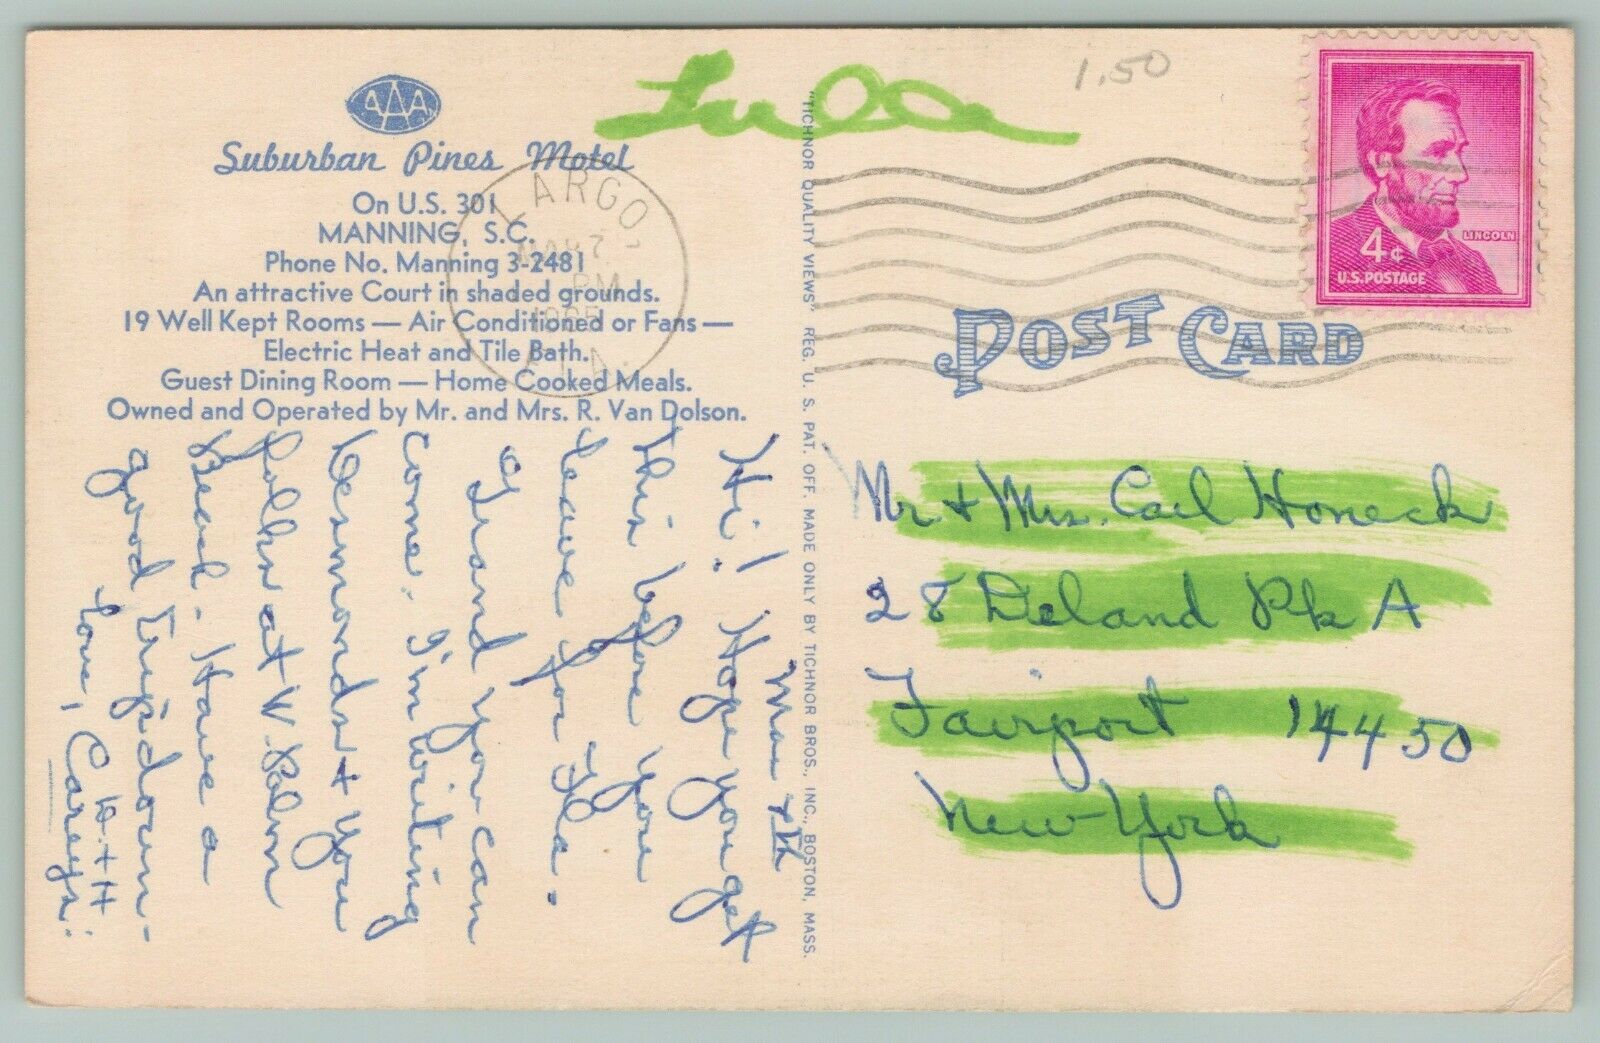 Lulla
1.50
AAA
Suburban Pines Motel
On U.S. 301
MANNING, S.C.
Phone No. Manning 3-2481
An attractive Court in shaded grounds.
19 Well Kept Rooms — Air Conditioned or Fans —
Electric Heat and Tile Bath.
Guest Dining Room — Home Cooked Meals.
Owned and Operated by Mr. and Mrs. R. Van Dolson.
LARGO,
7
PM
1965
FLA.
"TICHNOR QUALITY VIEWS" REG. U. S. PAT. OFF. MADE ONLY BY TICHNOR BROS., INC., BOSTON, MASS.
4¢
LINCOLN
U.S. POSTAGE
POST CARD
Mr. + Mrs. Carl Honeck
28 Deland Pk A
Fairport 14450
New York
Hi! Hope you get
this before you
leave for Fla.
Grand you can
come. I'm writing
Desmonds + your
folks at W. Palm
Beach. Have a
good trip down -
Love,
H + H
Careys.